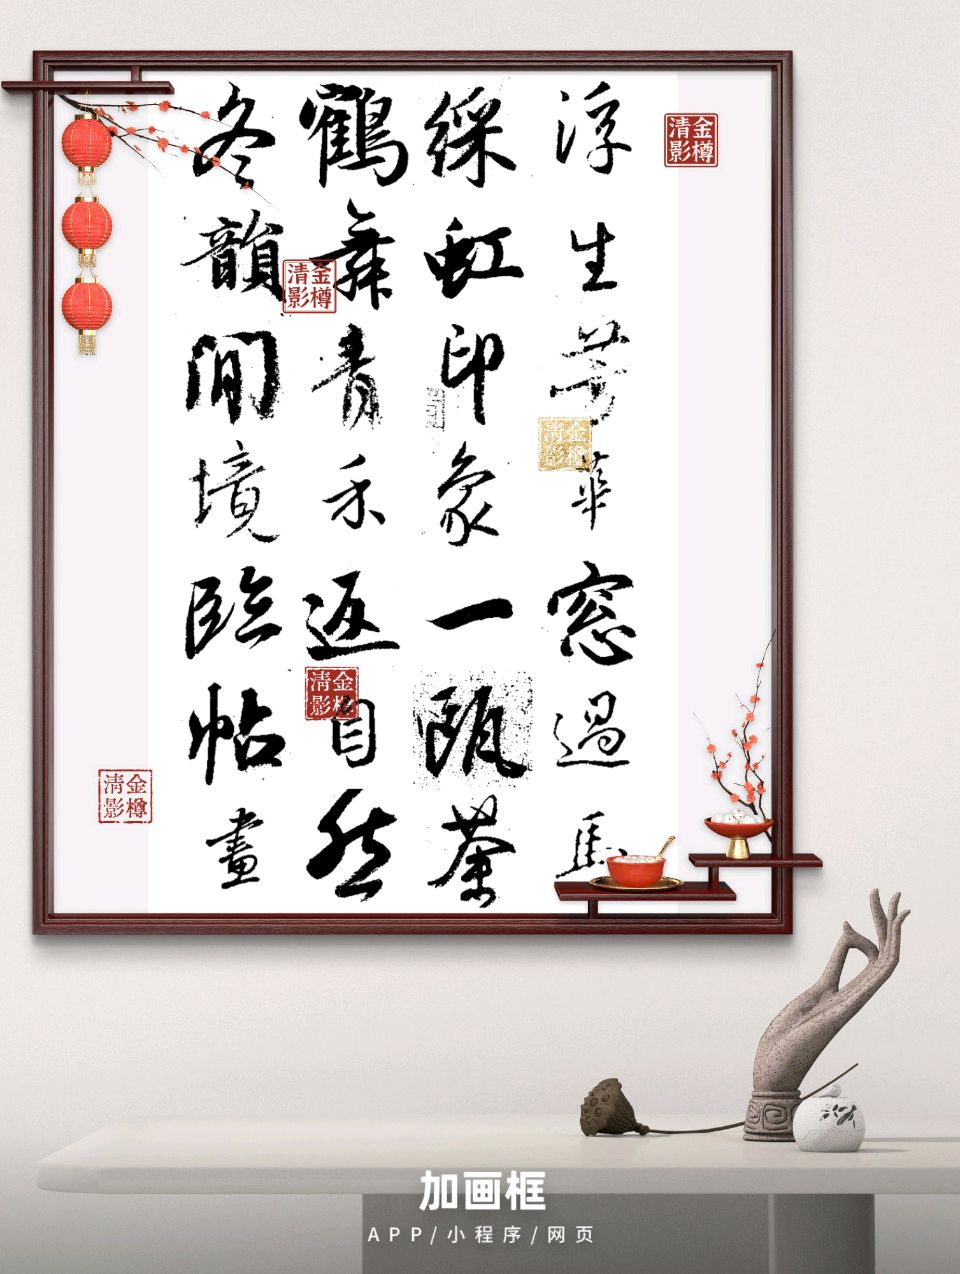 浮生芳華窓過馬
綵虹印象一甌茶
鶴舞青禾返自然
冬韻閒境臨帖畫
金樽清影
金樽清影
金樽清影
金樽清影
金樽清影
加画框
APP/小程序/网页